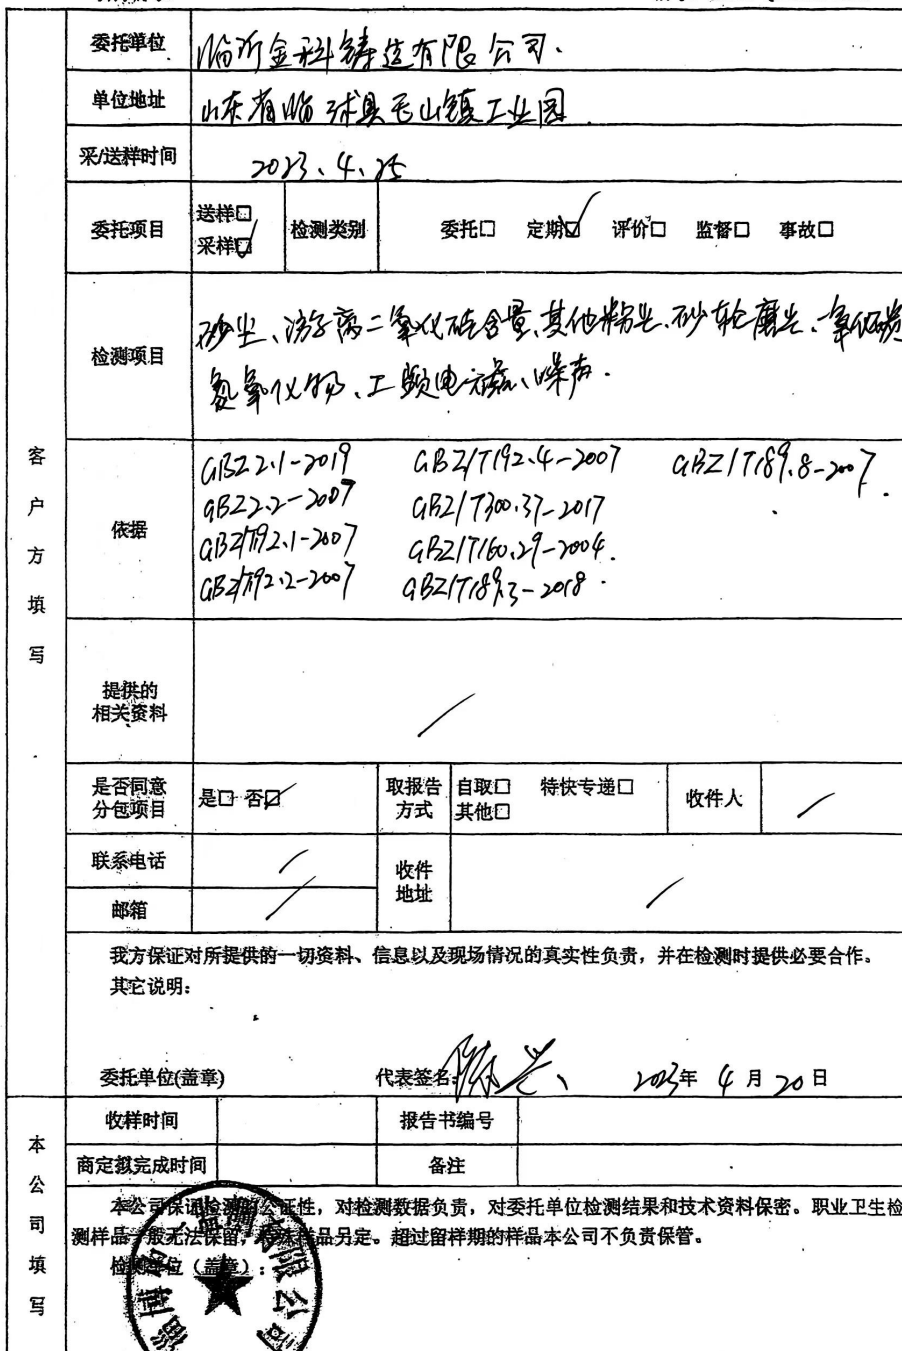 委托单位 临沂金科铸造有限公司.
单位地址 山东省临沭县玉山镇工业园
采/送样时间 2023.4.25
委托项目 送样□ 采样☑ 检测类别 委托□ 定期☑ 评价□ 监督□ 事故□
检测项目 矽尘、游离二氧化硅含量、其他粉尘、砂轮磨尘、一氧化碳
氮氧化物、工频电磁、噪声.
客户方填写
依据
GBZ2.1-2019 GBZ/T192.4-2007 GBZ/T189.8-2007.
GBZ2.2-2007 GBZ/T300.37-2017
GBZ/T192.1-2007 GBZ/T160.29-2004.
GBZ/T192.2-2007 GBZ/T189.3-2018.
提供的
相关资料 /
是否同意
分包项目 是□ 否☑ 取报告
方式 自取□ 特快专递□
其他□ 收件人 /
联系电话 / 收件
地址 /
邮箱 /
我方保证对所提供的一切资料、信息以及现场情况的真实性负责，并在检测时提供必要合作。
其它说明：
委托单位(盖章) 代表签名: 2023年 4月 20日
本公司填写
收样时间 报告书编号
商定拟完成时间 备注
本公司保证检测的公证性，对检测数据负责，对委托单位检测结果和技术资料保密。职业卫生检
测样品一般无法保留，特殊样品另定。超过留样期的样品本公司不负责保管。
检测单位（盖章）：
淄博 监测有限公司